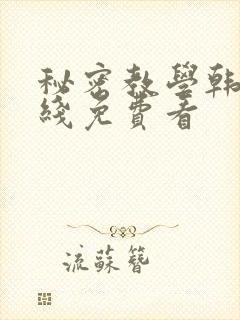 秘密教學韓
綫免費看
流蘇簪